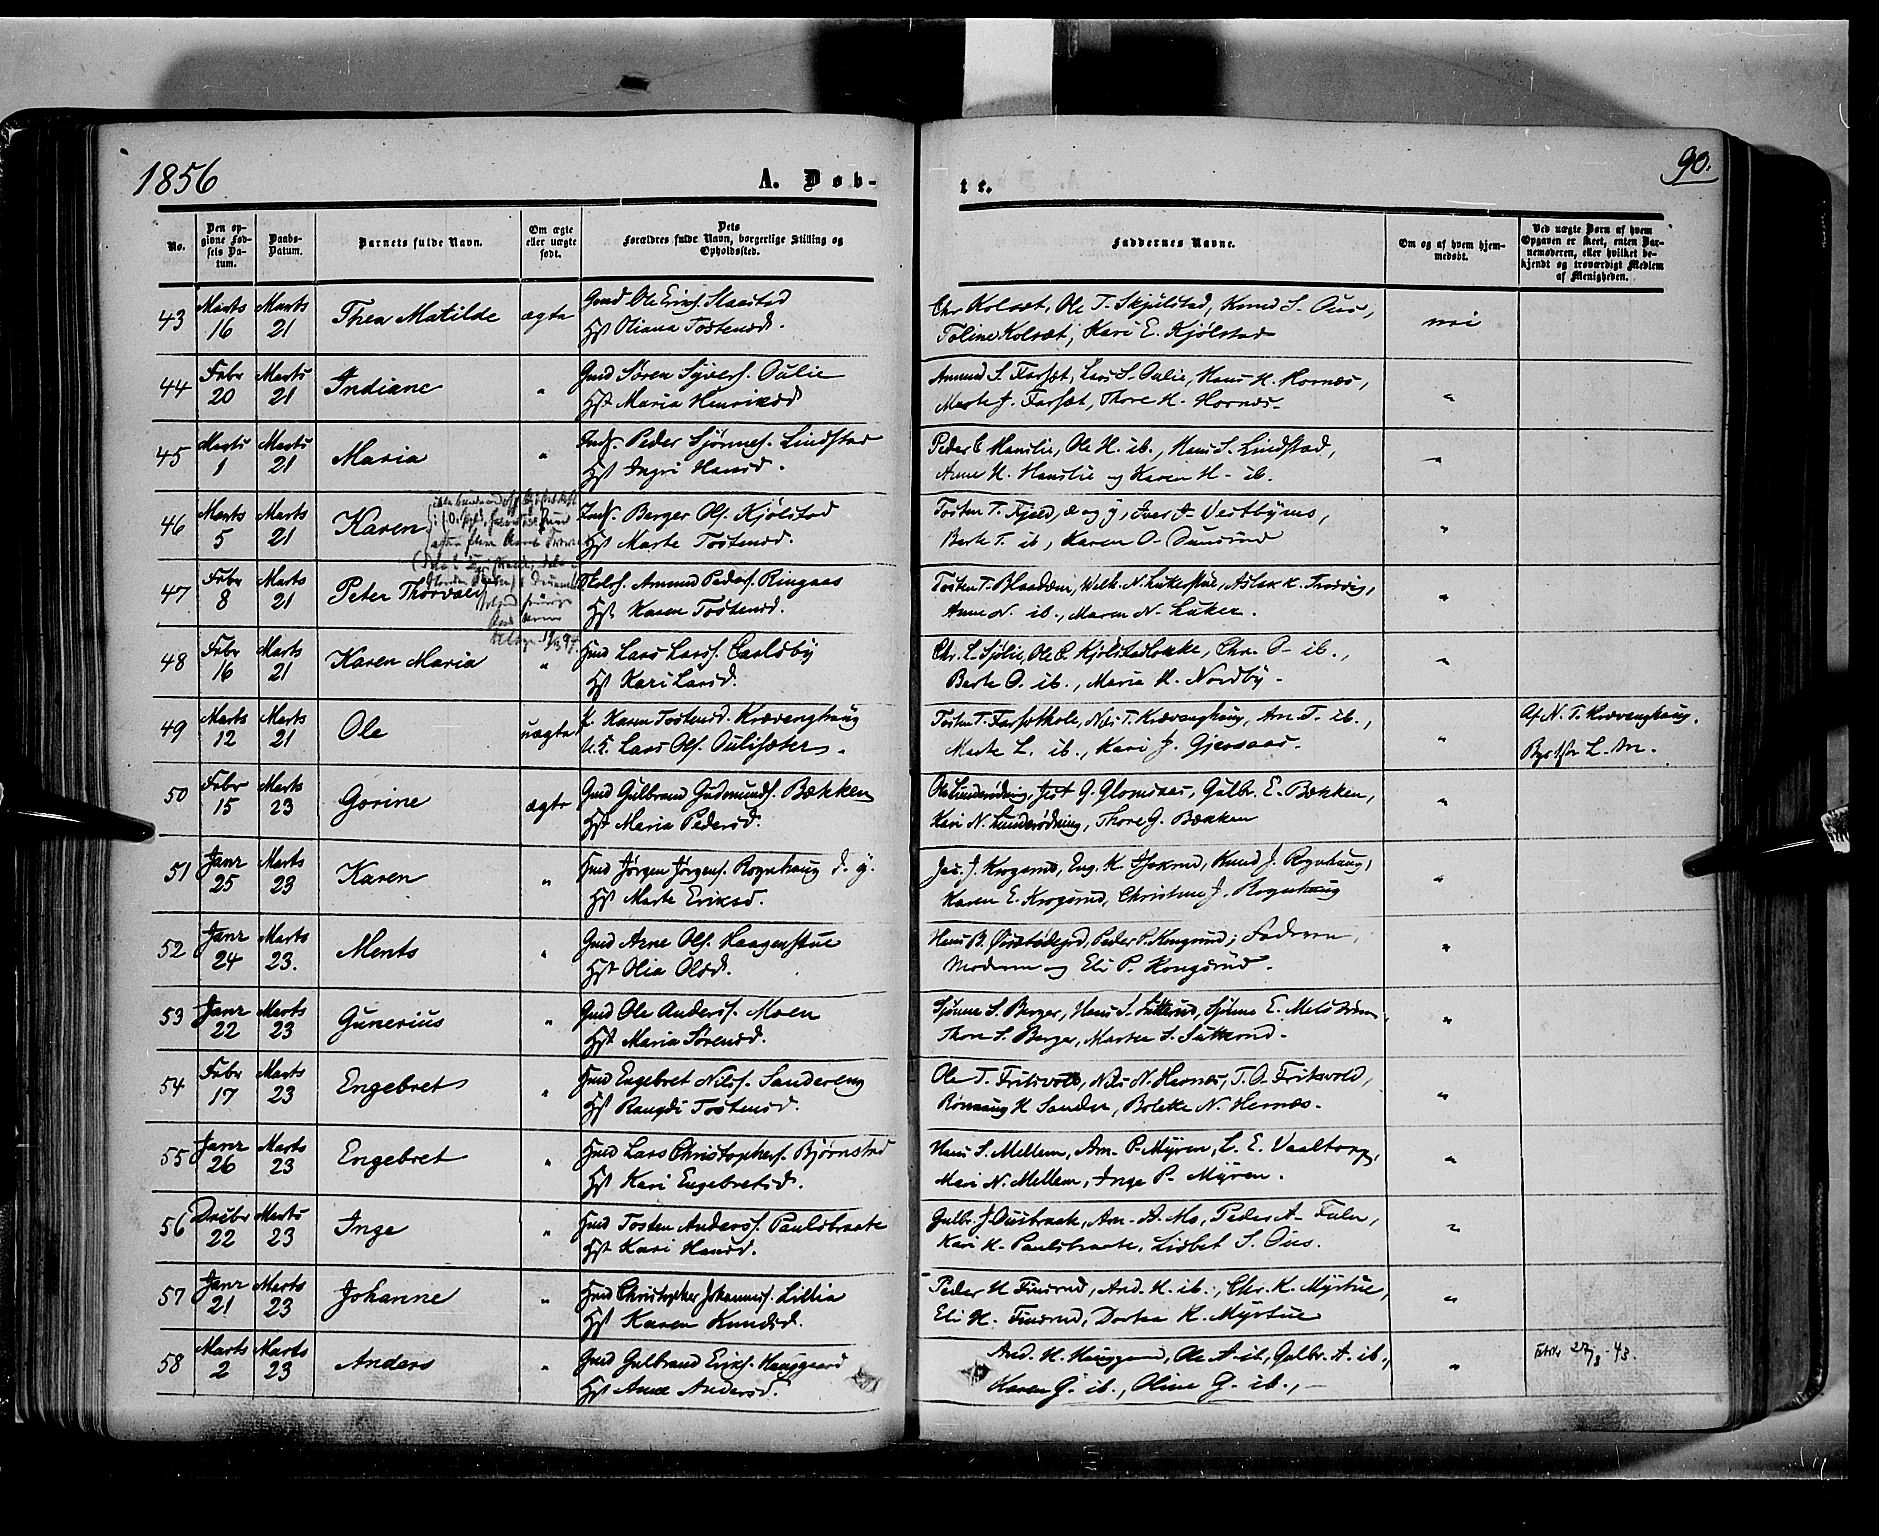 1856
A. Døb-
te.
90.
No.
Den opgivne Fødsels Datum.
Daabs-Datum.
Barnets fulde Navn.
Om ægte eller uægte født.
Dets Forældres fulde Navn, borgerlige Stilling og Opholdssted.
Faddernes Navne.
Om og af hvem hjemmedøbt.
Ved uægte Børn af hvem Opgaven er skeet, enten Barnemoderen, eller hvilket bekjendt og troværdigt Medlem af Menigheden.
43 Marts 16 Marts 21 Thea Matilde ægte Gmd Ole Eriks. Staastad
Hst Oliana Tostensd.
Chr Kolsæt, Ole T. Skjulstad, Knud S. Ous,
Toline Kolsæt, Kari E. Kjølstad
nei
44 Febr 20 Marts 21 Indiane " Gmd Søren Syvers. Oulie
Hst Maria Henriksd
Amund S. Farsæt, Lars S. Oulie, Hans H. Hornæs,
Marte J. Farsæt, Thore H. Hornæs.
"
45 Marts 1 Marts 21 Maria " Inds. Peder Sjønnes. Lindstad
Hst Ingri Hansd.
Peder C Hanslie, Ole H. ib., Hans S. Lindstad,
Anne H. Hanslie og Karen H. ib.
"
46 Marts 5 Marts 21 Karen Inds. Berger Ols. Kjølstad
Hst Marte Tostensd.
Tosten T. Fjeld, æ og y, Iver A. Vestbyms,
Berte T. ib, Karen O. Dunsrud
"
47 Febr 8 Marts 21 Peter Thorvald Skols. Amund Peders. Ringaas
Hst Karen Tostensd.
Tosten T. Blaaddæn, Welh. N. Lukestue, Aslak K. Trosvig,
Anne N. ib., Maren N. Luker.
"
48 Febr 16 Marts 21 Karen Maria " Hmd Lars Larss. Carlsby
Hst Kari Larsd.
Chr. L. Sjølie, Ole C. Kjølstadløkke, Chr. O. ib.,
Berte O. ib., Maria H. Nordby.
"
49 Marts 12 Marts 21 Ole uægte P. Karen Tostensd. Krævenghaug
U.K. Lars Ols. Oulisæter.
Tosten T. Farsæthole, Nils T. Krævenghaug, An. T. ib.,
Marte L. ib., Kari J. Gjersaas.
"
Af N. T. Krævenghaug.
50 Febr 15 Marts 23 Gorine ægte Gmd Gulbrand Gudmunds. Bækken
Hst Maria Pedersd.
Ole Lunderødning, Jest G. Glomsaas, Gulbr. E. Bækken,
Kari N. Lunderødning, Thore G. Bækken
"
51 Janr 25 Marts 23 Karen " Hmd Jørgen Jørgens. Rognhaug d. y.
Hst Marte Eriksd.
Jac. J. Krogsrud, Eng. K. Askrud, Knud J. Rognhaug,
Karen E. Krogsrud, Christine J. Rognhaug
"
52 Janr 24 Marts 23. Ments " Gmd Arne Ols. Haagenstue
Hst Olia Olsd.
Hans B. Ørstødegrd, Peder P. Kongsrud, Faderen,
Moderen og Eli P. Kongsrud.
"
53 Janr 22 Marts 23 Gunerius " Gmd Ole Anderss. Moen
Hst Maria Sørensd.
Sjønne S. Berger, Hans S. Sukkerud, Sjønne E. Melstrøm,
Thore S. Berger, Marthe S. Sukkerud.
"
54 Febr 17 Marts 23 Engebret " Hmd Engebret Nilss. Sandereng
Hst Rangdi Tostensd.
Ole T. Fritsvold, Nils N. Hernæs, T. O. Fritsvold,
Rønnaug H. Sander, Bolette N. Hernæs.
"
55 Janr 26 Marts 23 Engebret " Hmd Lars Christophers. Bjørnstad
Hst Kari Engebretsd.
Hans S. Mellem, Am. P. Myren, L. E. Vaaltorp,
Mari N. Mellem, Inge P. Myren.
"
56 Decbr 22 Marts 23 Inge " Hmd Tosten Anderss. Paulsbraate
Hst Kari Hansd.
Gulbr. J. Ousbraate, Am. A. Mo, Peder A. Fulu,
Kari H. Paulsbraate, Lisbet S. Ous.
"
57 Janr 21 Marts 23 Johanne " Hmd Christopher Johanness. Lillia
Hst Karen Knudsd.
Peder H Finsrud, And. H. ib., Chr. K. Myrstue,
Eli H. Finsrud, Dortea K. Myrstue
"
58 Marts 2 Marts 23 Anders " Gmd Gulbrand Eriks. Hauggaard
Hst Anne Andersd.
And. H. Hauggaard, Ole A. ib, Gulbr. A. ib.,
Karen G. ib., Oline G. ib.,
"